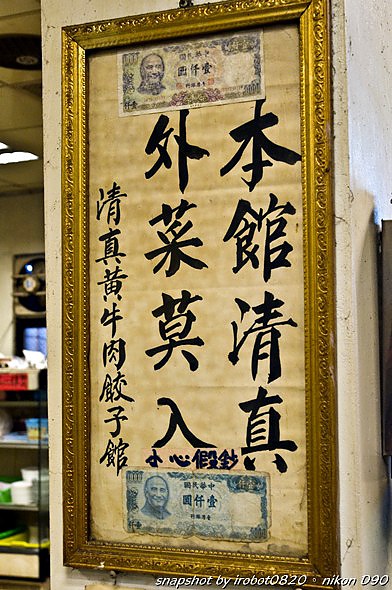 中華民國
壹仟圓
本館清真
外菜莫入
清真黃牛肉餃子館
小心假鈔
中華民國
壹仟圓
snapshot by irobot0820。nikon D90